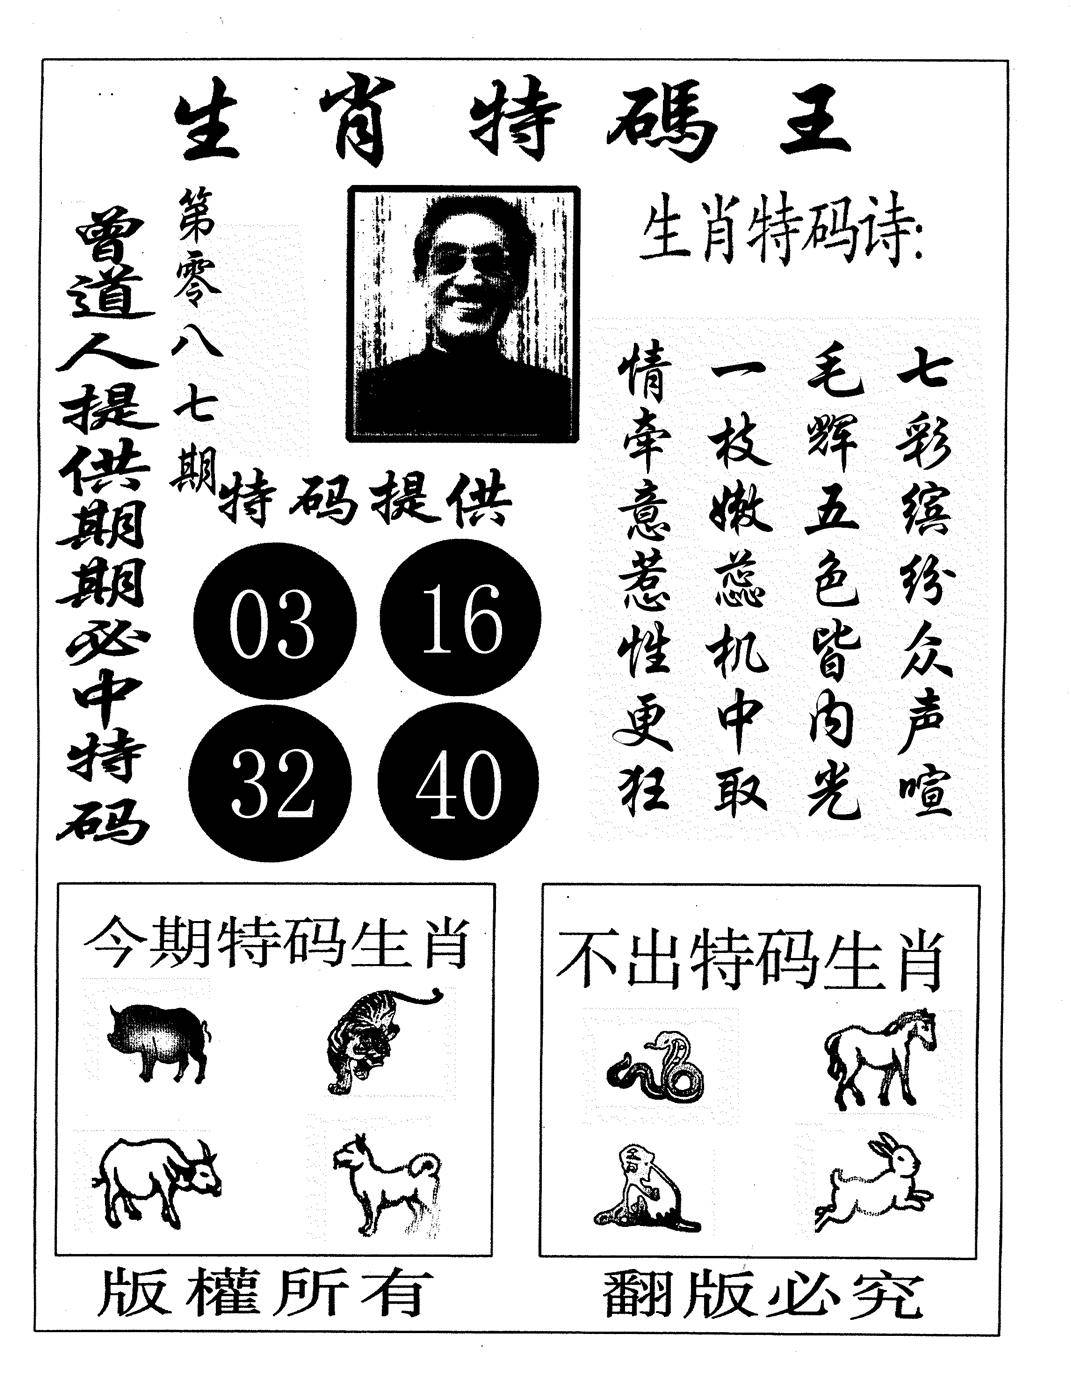 生肖特碼王
曾道人提供期期必中特码
第零八七期
生肖特码诗:
七彩缤纷众声喧
毛辉五色皆内光
一枝嫩蕊机中取
情牵意惹性更狂
特码提供
03 16
32 40
今期特码生肖
不出特码生肖
版權所有
翻版必究